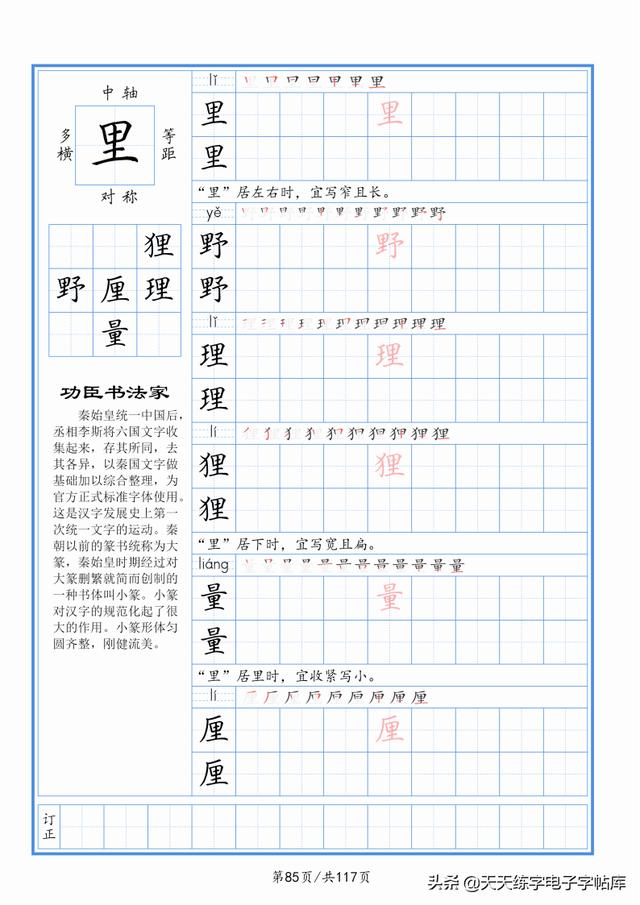 中轴
多横
里
等距
对称
狸
野 厘 理
量
功臣书法家
秦始皇统一中国后，
丞相李斯将六国文字收
集起来，存其所同，去
其各异，以秦国文字做
基础加以综合整理，为
官方正式标准字体使用。
这是汉字发展史上第一
次统一文字的运动。秦
朝以前的篆书统称为大
篆，秦始皇时期经过对
大篆删繁就简而创制的
一种书体叫小篆。小篆
对汉字的规范化起了很
大的作用。小篆形体匀
圆齐整，刚健流美。
lǐ
里 里
里
“里”居左右时，宜写窄且长。
yě
野 野
野
lǐ
理 理
理
lí
狸 狸
狸
“里”居下时，宜写宽且扁。
liáng
量 量
量
“里”居里时，宜收紧写小。
lí
厘 厘
厘
订正
第85页/共117页
头条 @天天练字电子字帖库